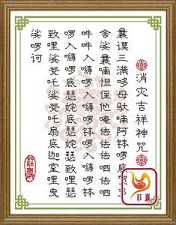 消灾吉祥神咒
曩谟三满哆母驮喃阿钵啰底
舍娑曩喃怛姪他唵佉佉佉呬佉
呬吽吽入嚩啰入嚩啰钵
啰入嚩啰底瑟姹底瑟姹瑟致哩
致哩娑癹吒娑癹吒扇底迦室哩曳
娑嚩诃